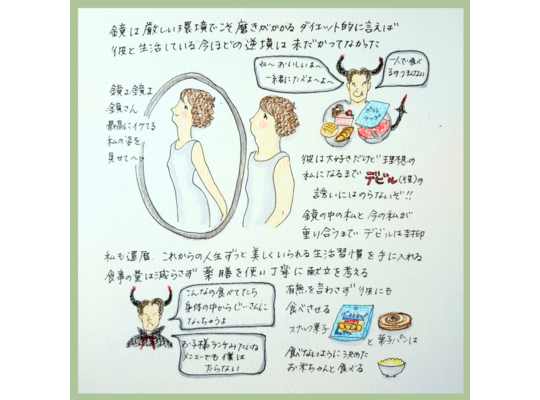 鏡は厳しい環境でこそ磨きがかかる ダイエット的に言えば
彼と生活している今ほどの逆境は未だかつてなかった
ね〜おいしいよ〜
一緒にたべよ〜よ〜
一人で食べ
るのつまんない
鏡よ鏡よ
鏡さん
最高にイケてる
私の姿を
見せて〜♪
ポテト
チップ
彼は大好きだけど理想の
私になるまで デビル(彼)の
誘いにはのらないぞ!!
鏡の中の私と今の私が
重い合うまで デビルは封印
私も還暦、これからの人生ずっと美しくいられる生活習慣を手に入れる
食事の量は減らさず 薬膳を使い丁寧に献立を考える
こんなの食べてたら
身体の中からじーさんに
なっちゃうよ
お子様ランチみたいな
メニューでも僕は
たらない
有無を言わさず彼にも
食べさせる
スナック菓子
と菓子パンは
食べないように決めた
お米ちゃんと食べる